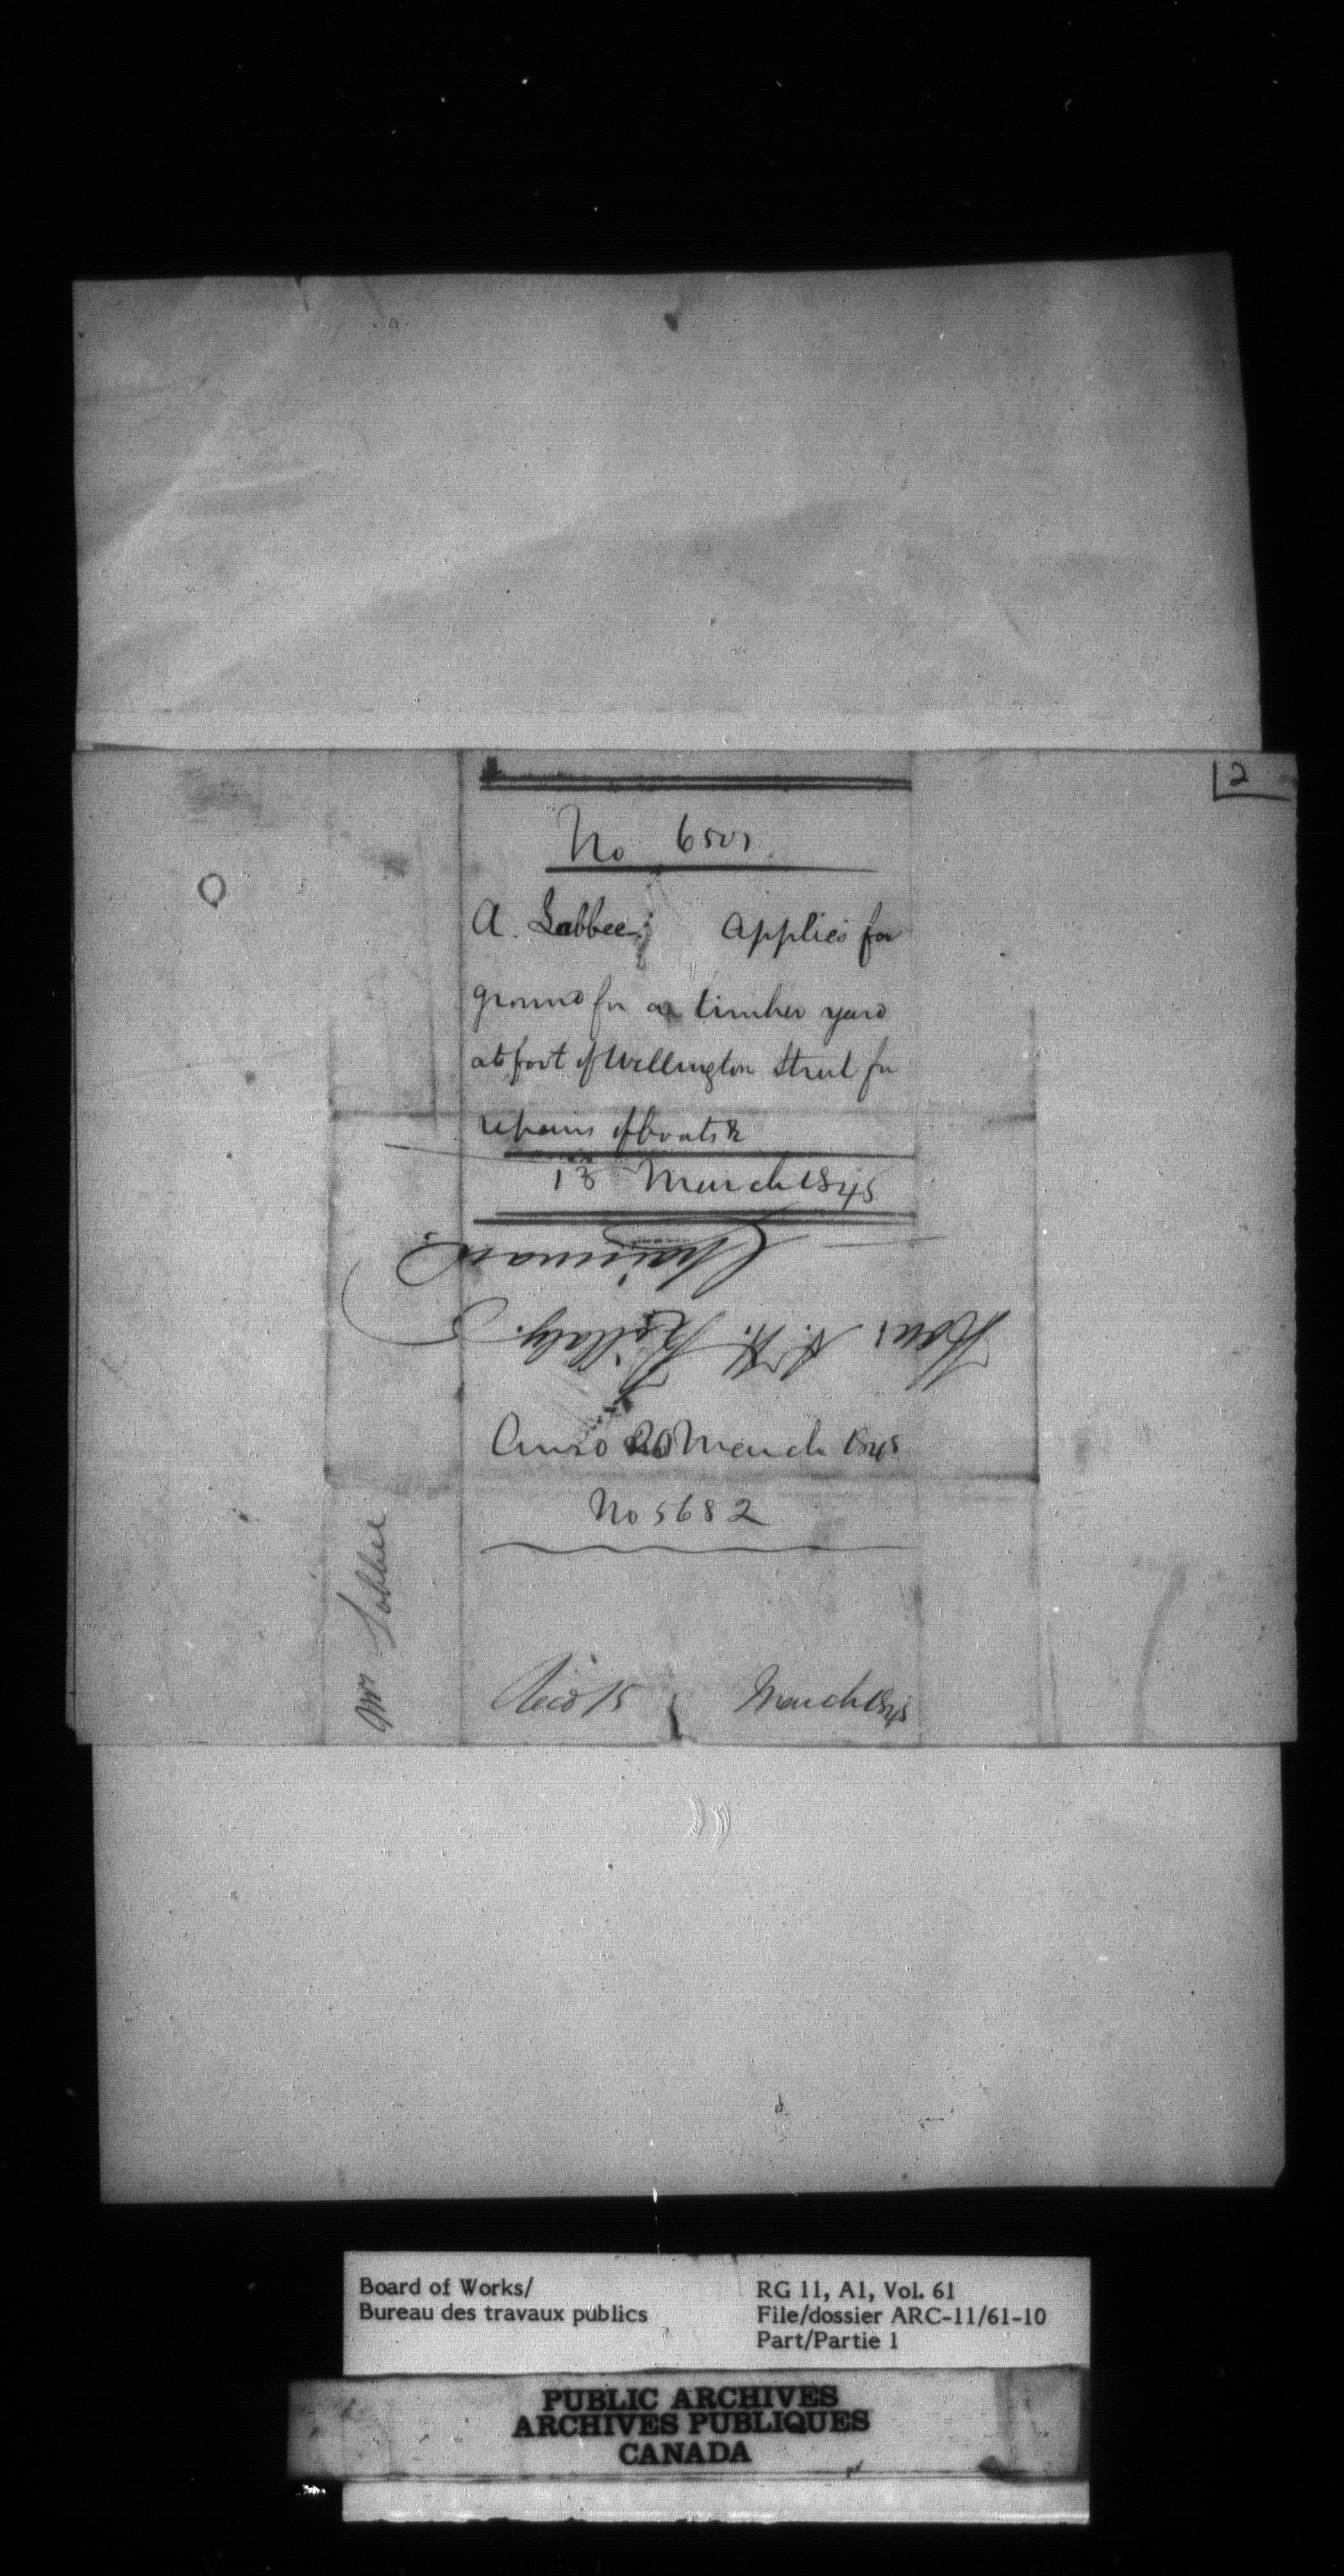 2
No 6501
A. Labbee; applies for
ground for a timber yard
at foot of Wellington Street for
repairs of boats &
13 March 1845
Chairman
Hon. H. H. Killaly.
Answd 20 March 1845
No 5682
Mr Labbee
Recd 15 March 1845
Board of Works/
Bureau des travaux publics
RG 11, A1, Vol. 61
File/dossier ARC-11/61-10
Part/Partie 1
PUBLIC ARCHIVES
ARCHIVES PUBLIQUES
CANADA